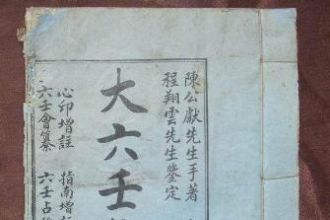 陳公獻先生手著
程翔雲先生鑒定
大六壬
心印增註
六壬會纂
指南增
六壬占